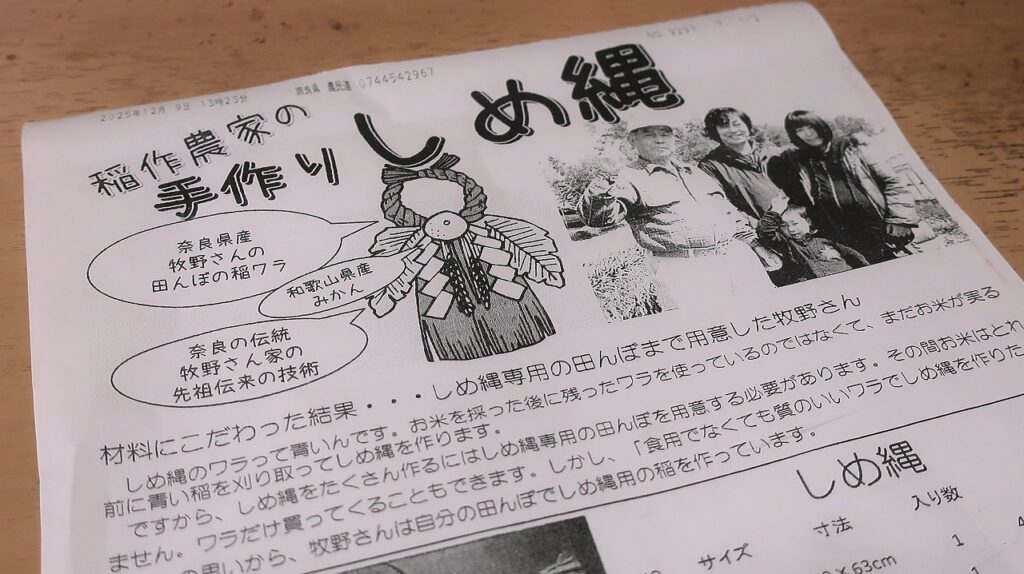 2025年12月 9日 13時23分 奈良県 農民連 0744542967 NO.9297
稲作農家の
手作り しめ縄
奈良県産
牧野さんの
田んぼの稲ワラ
和歌山県産
みかん
奈良の伝統
牧野さん家の
先祖伝来の技術
材料にこだわった結果・・・しめ縄専用の田んぼまで用意した牧野さん
しめ縄のワラって青いんです。お米を採った後に残ったワラを使っているのではなくて、まだお米が実る
前に青い稲を刈り取ってしめ縄を作ります。
ですから、しめ縄をたくさん作るにはしめ縄専用の田んぼを用意する必要があります。その間お米はとれ
ません。ワラだけ買ってくることもできます。しかし、「食用でなくても質のいいワラでしめ縄を作りた
の思いから、牧野さんは自分の田んぼでしめ縄用の稲を作っています。
しめ縄
サイズ 寸法 入り数
×63cm 1